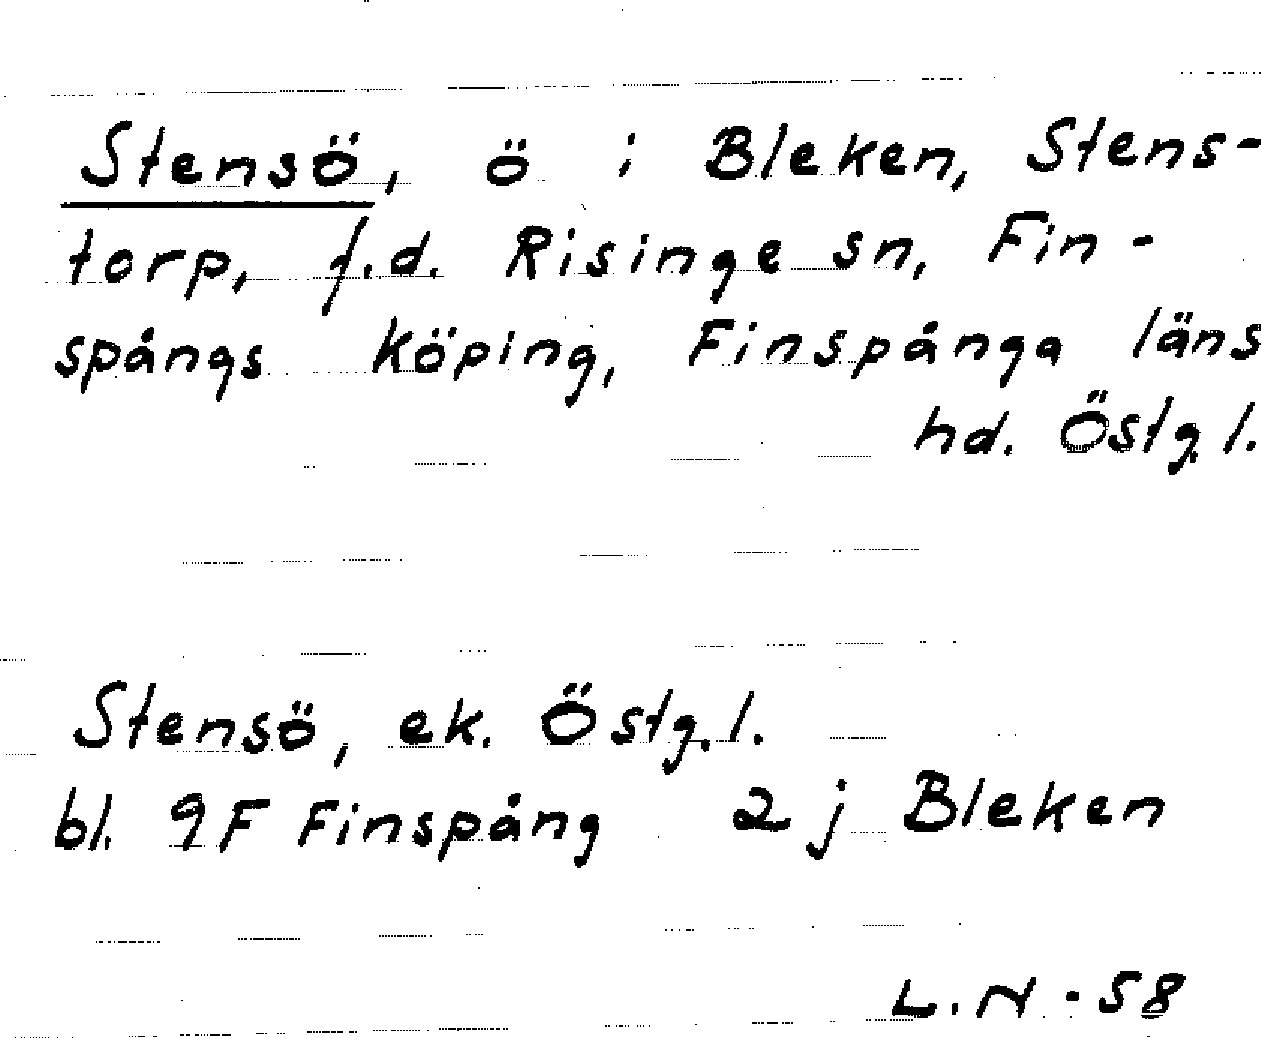 Stensö, ö i Bleken, Stens-
torp, f.d. Risinge sn, Fin-
spångs köping, Finspånga läns
hd. Östg.l.
Stensö, ek. Östg.l.
bl. 9F Finspång 2 j Bleken
L.N - 58